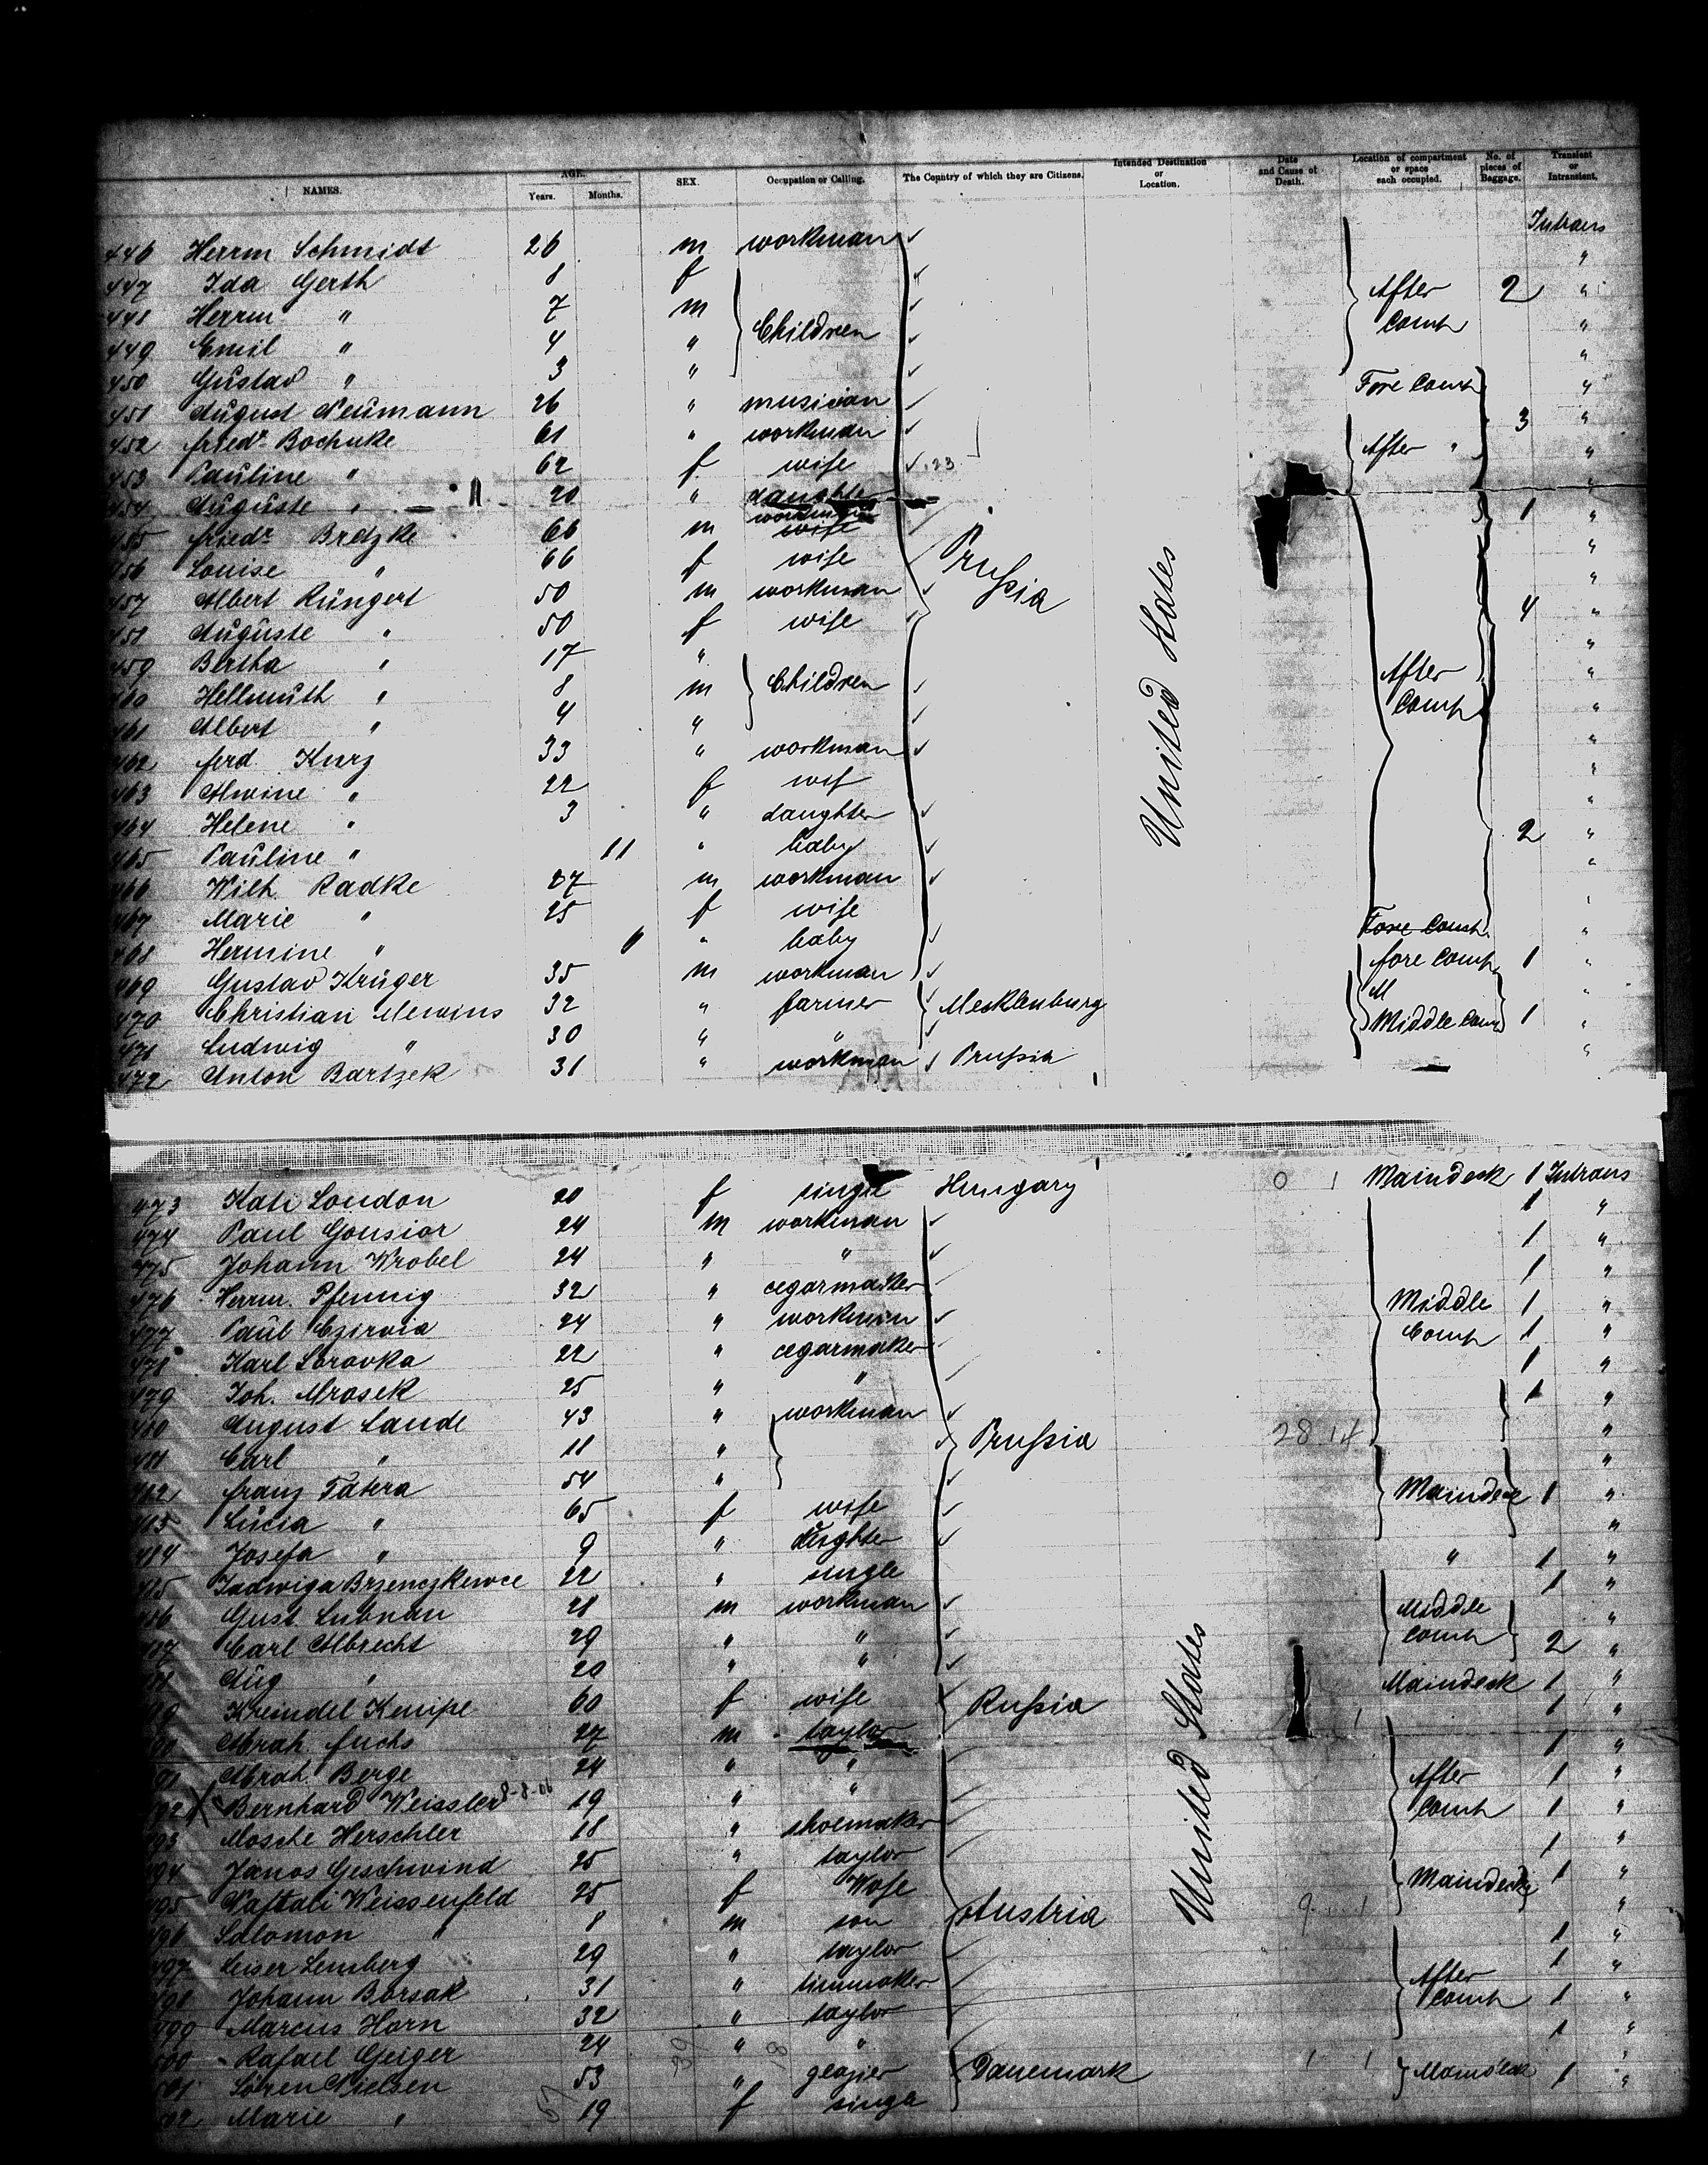 NAMES. AGE. Years. Months. SEX. Occupation or Calling. The Country of which they are Citizens. Intended Destination or Location. Date and Cause of Death. Location of compartment or space each occupied. No. of pieces of Baggage. Transient or Intransient.
446 Herrm Schmidt 26 m workman Intrans
447 Ida Gerth 8 f "
448 Herrm " 7 m Children After Comp 2 "
449 Emil " 4 " "
450 Gustav " 3 " "
451 August Neumann 26 " musician Fore Comp "
452 friedr. Bochnke 61 " workman 3 "
453 Pauline " 62 f wife 23 After " "
454 Auguste " 20 " daughter "
455 friedr. Bretzke 66 m workman wife 1 "
456 Louise " 66 f wife Prußia "
457 Albert Rüngert 50 m workman "
458 Auguste " 50 f wife 4 "
459 Bertha " 17 " "
460 Hellmuth " 8 m Children After Comp "
461 Albert " 4 " "
462 ferd. Kurz 33 " workman United States "
463 Alwine " 22 f wif "
464 Helene " 3 " daughter "
465 Pauline " 11 " baby 2 "
466 Wilh. Radke 27 m workman "
467 Marie " 25 f wife "
468 Hermine " " baby Fore Comp. "
469 Gustav Krüger 35 m workman fore Comp 1 "
470 Christian Mewins 32 " farmer Mecklenburg M Middle Comp 1 "
471 Ludwig " 30 " " "
472 Anton Bartzek 31 " workman Prußia "
473 Kati London 20 f single Hungary 0 1 Maindeck 1 Intrans
474 Paul Gonsior 24 m workman 1 "
475 Johann Wrobel 24 " " 1 "
476 Herrm. Pfennig 32 " cegarmaker 1 "
477 Paul Czirvia 24 " workman Middle Comp 1 "
478 Karl Soravka 22 " cegarmaker 1 "
479 Joh. Mrosek 25 " " 1 "
480 August Lande 43 " workman 1 "
481 Carl " 11 " Prußia 28 14 "
482 franz Tatera 54 " "
483 Lucia " 65 f wife Maindeck 1 "
484 Josefa " 9 " daughter "
485 Jadwiga Brzenczkewce 22 " single " 1 "
486 Gust. Lubnau 28 m workman 1 "
487 Carl Albrecht 29 " " Middle Comp "
488 Aug " 20 " " 2 "
489 Kreindel Kempe 60 f wife Rußia Maindeck 1 "
490 Abrah. fuchs 27 m taylor 1 "
491 Abrah. Berge 24 " " 1 "
492 X Bernhard Weissler 8-8-06 19 " " After Comp 1 "
493 Mosche Herschler 18 " shoemaker 1 "
494 Janos Geschwind 25 " taylor 1 "
495 Naftali Weissenfeld 25 f Wife Maindeck 1 "
496 Salomon " 8 m son Austria 9 1 "
497 Leiser Lemberg 29 " taylor 1 "
498 Johann Borsak 31 " tinmaker 1 "
499 Marcus Horn 32 " taylor After Comp 1 "
500 Rafael Geiger 24 " " 1 "
501 Sören Nielsen 53 " glazier Danemark 1 1 Maindeck 1 "
502 Marie " 19 f single "
United States